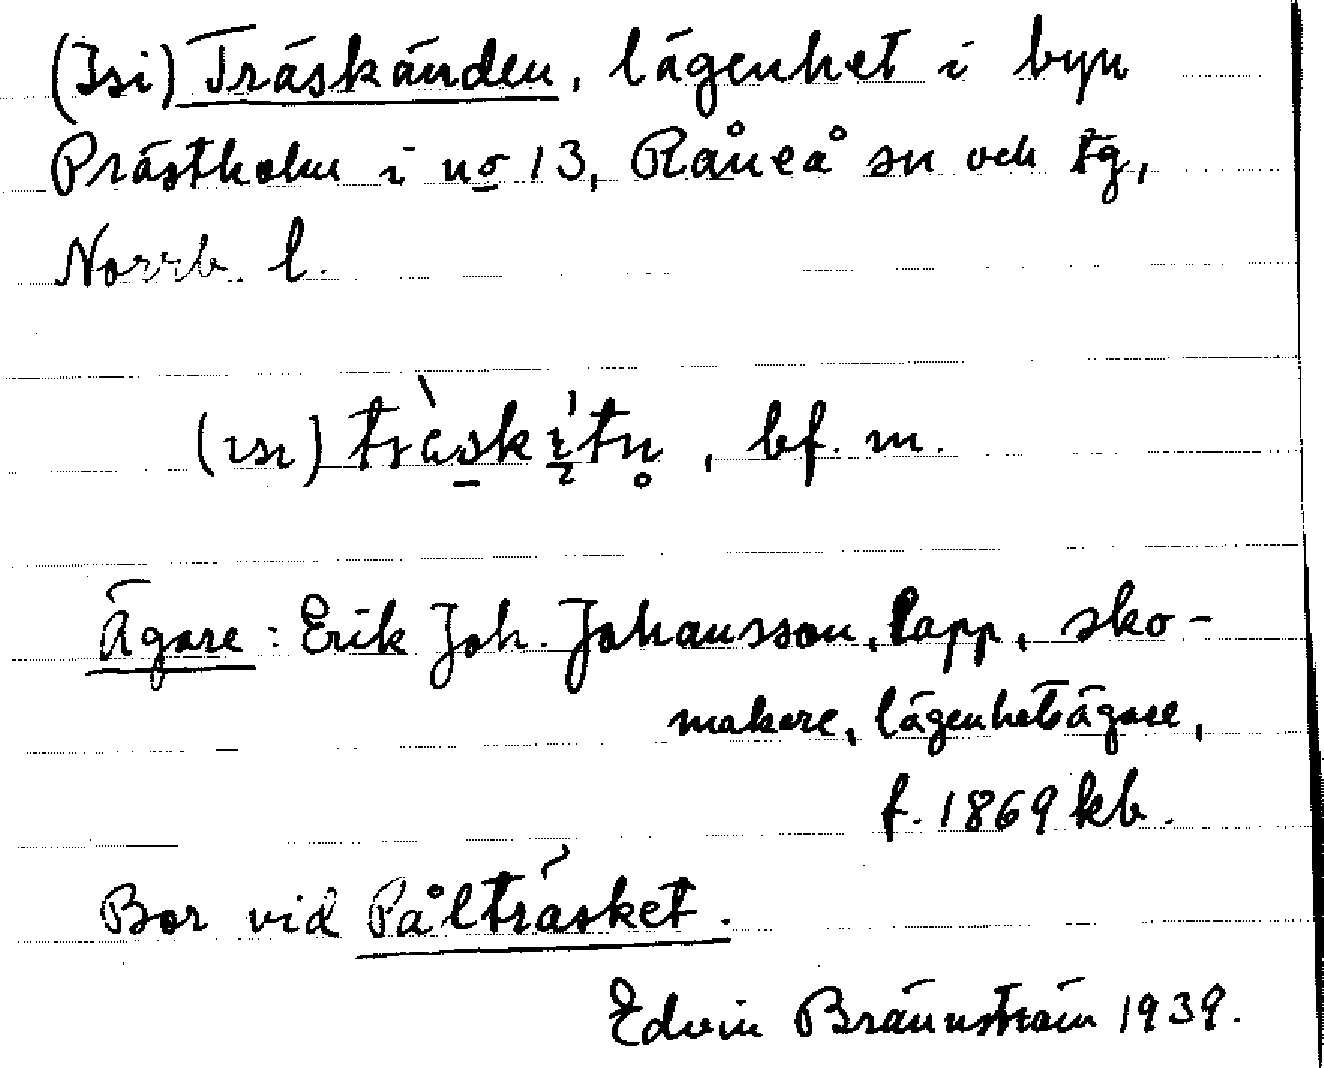 (Isi) Träskänden, lägenhet i byn
Prästholm i no 13, Råneå sn och tg,
Norrb. l.
bf. m.
Ägare: Erik Joh. Johansson, lapp, sko-
makare, lägenhetsägare,
f. 1869 kb.
Bor vid Pålträsket.
Edvin Brännström 1939.